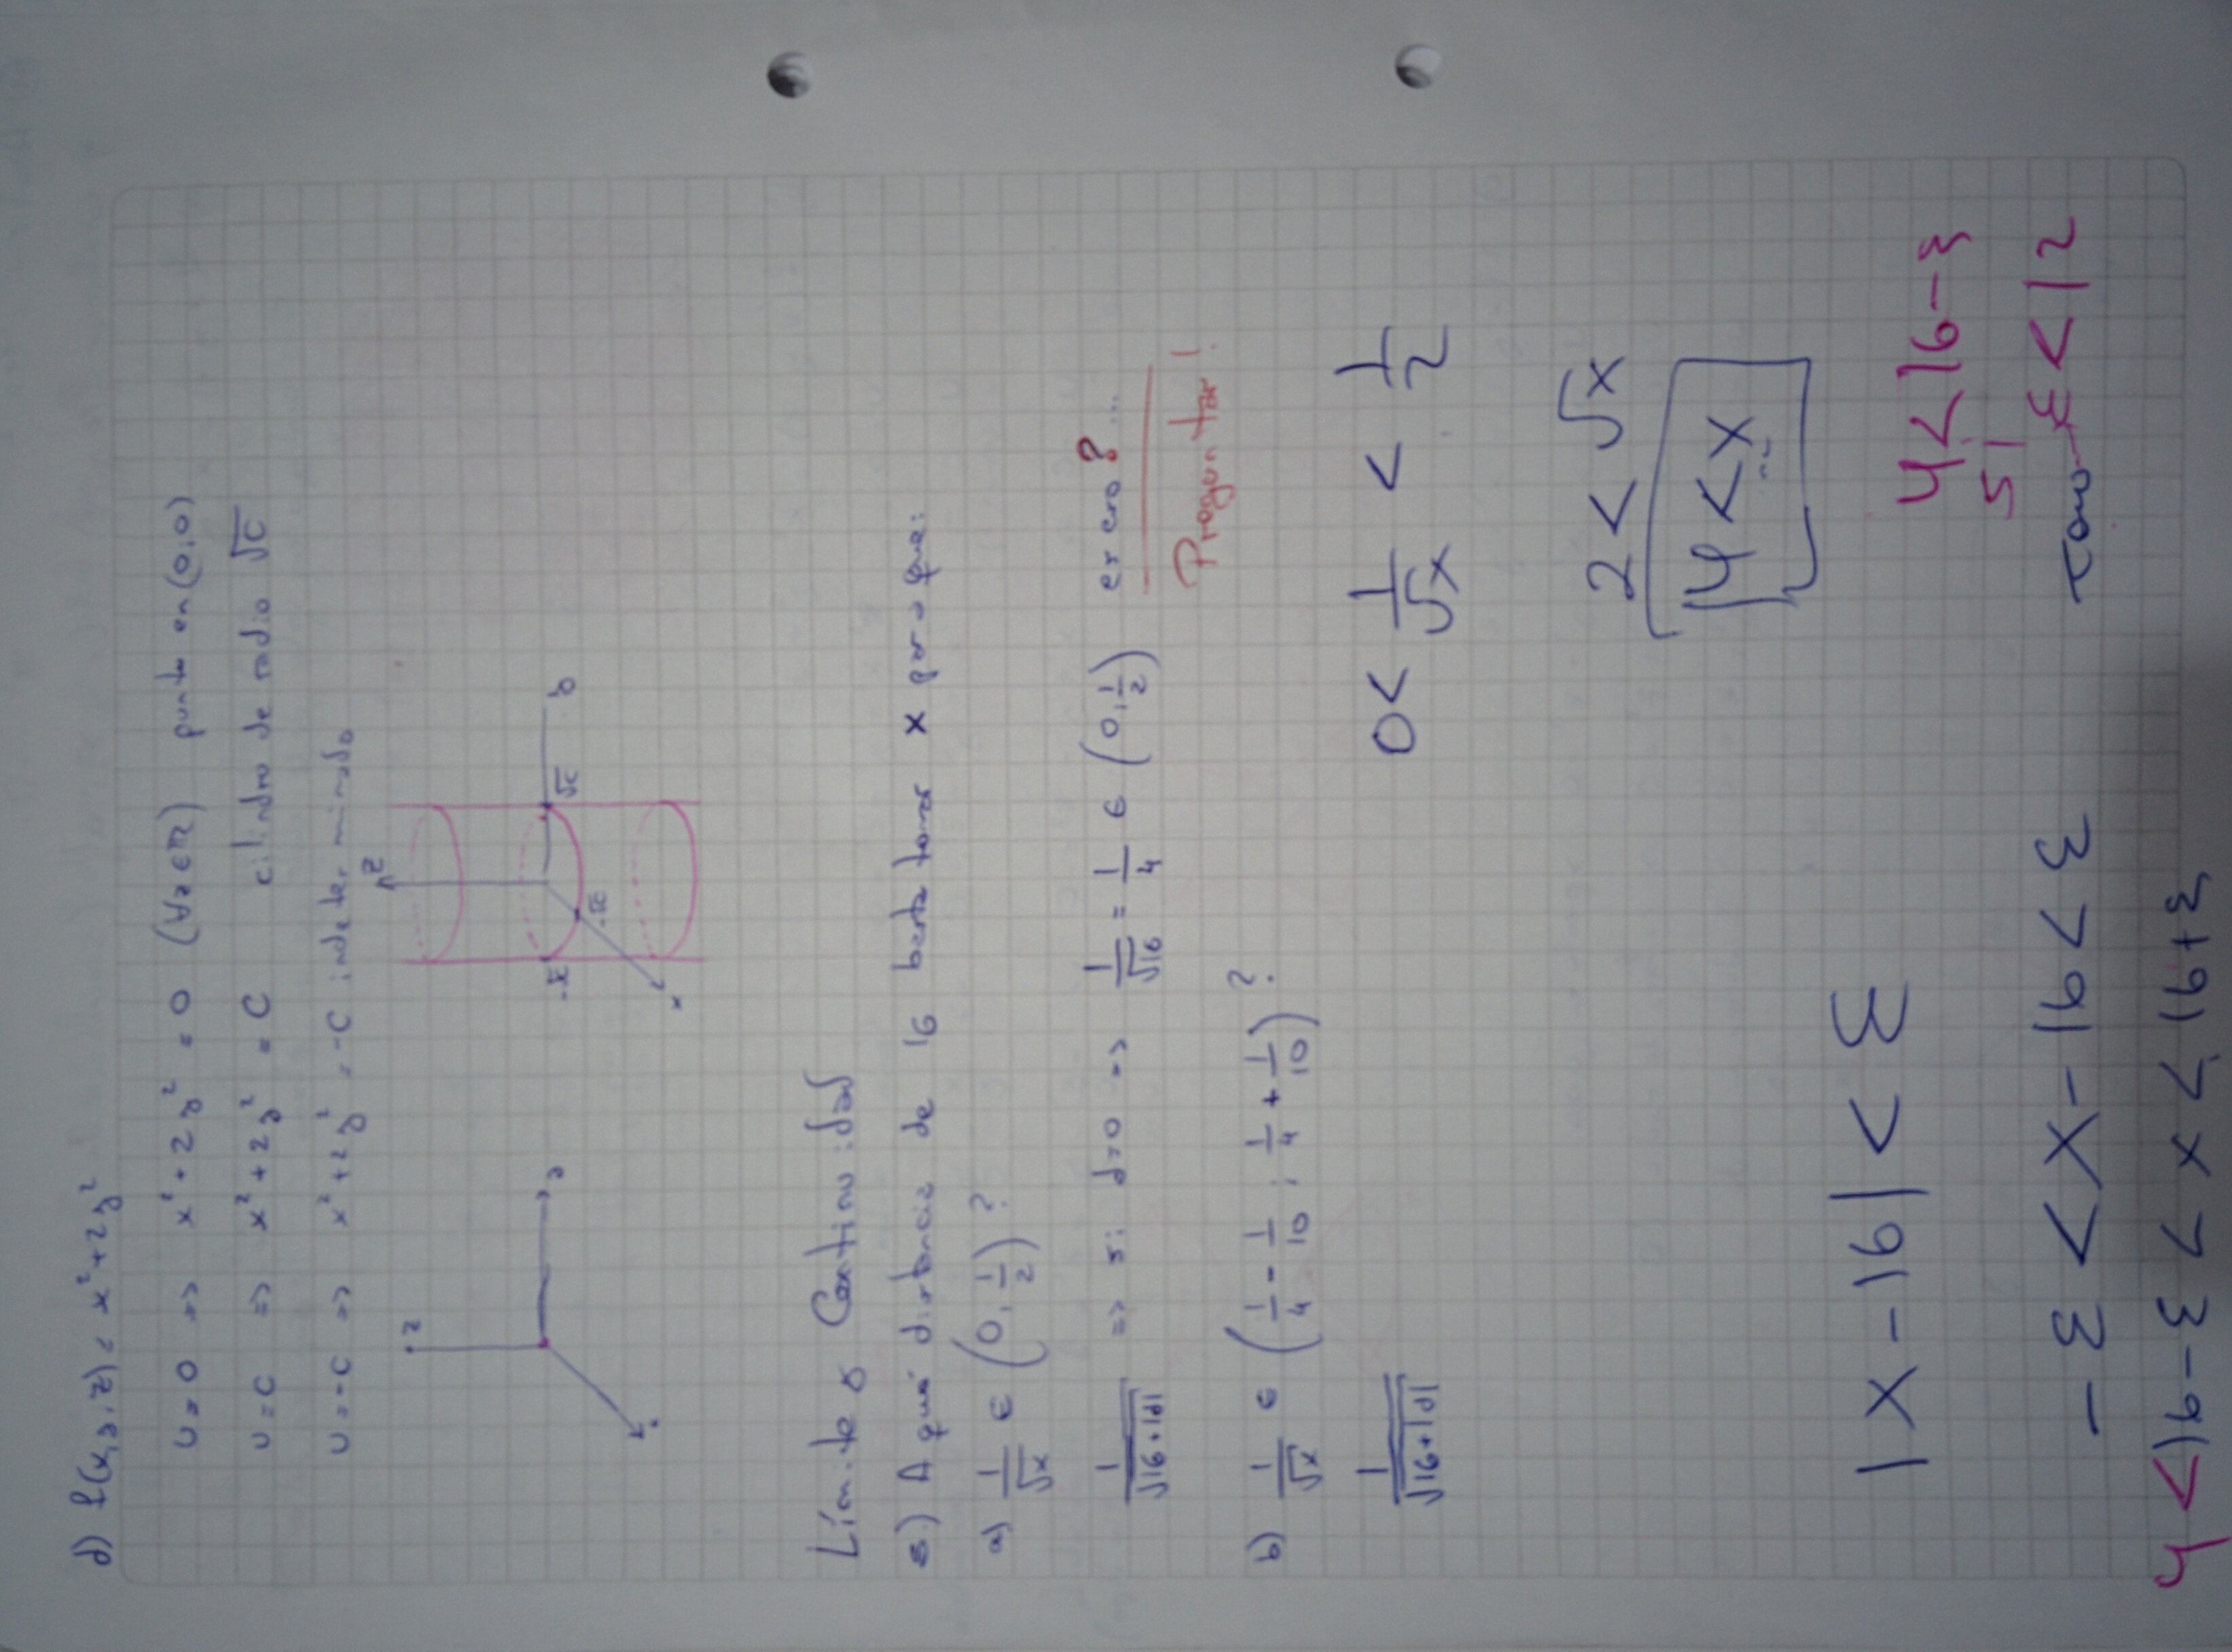 d) f(x,y,z) = x² + 2y²
U = 0 => x² + 2y² = 0 (∀z∈ℝ) punto en (0,0)
U = C => x² + 2y² = C cilindro de radio √C
U = -C => x² + 2y² = -C indeterminado
z
y
z
-√C
√C
y
-√C
x
Límite y Continuidad
5) A qué distancia de 16 basta tomar x para que:
a) 1/√x ∈ (0, 1/2) ?
1/√(16+|d|) => si d=0 => 1/√16 = 1/4 ∈ (0, 1/2) es ero ? ...
Preguntar!
b) 1/√x ∈ (1/4 - 1/10 ; 1/4 + 1/10) ?
1/√(16+|d|)
0 < 1/√x < 1/2
2 < √x
4 < x
|x - 16| < ε
4 < 16 - ε
si
- ε < x - 16 < ε
ε < 12
4 < 16 - ε < x < 16 + ε